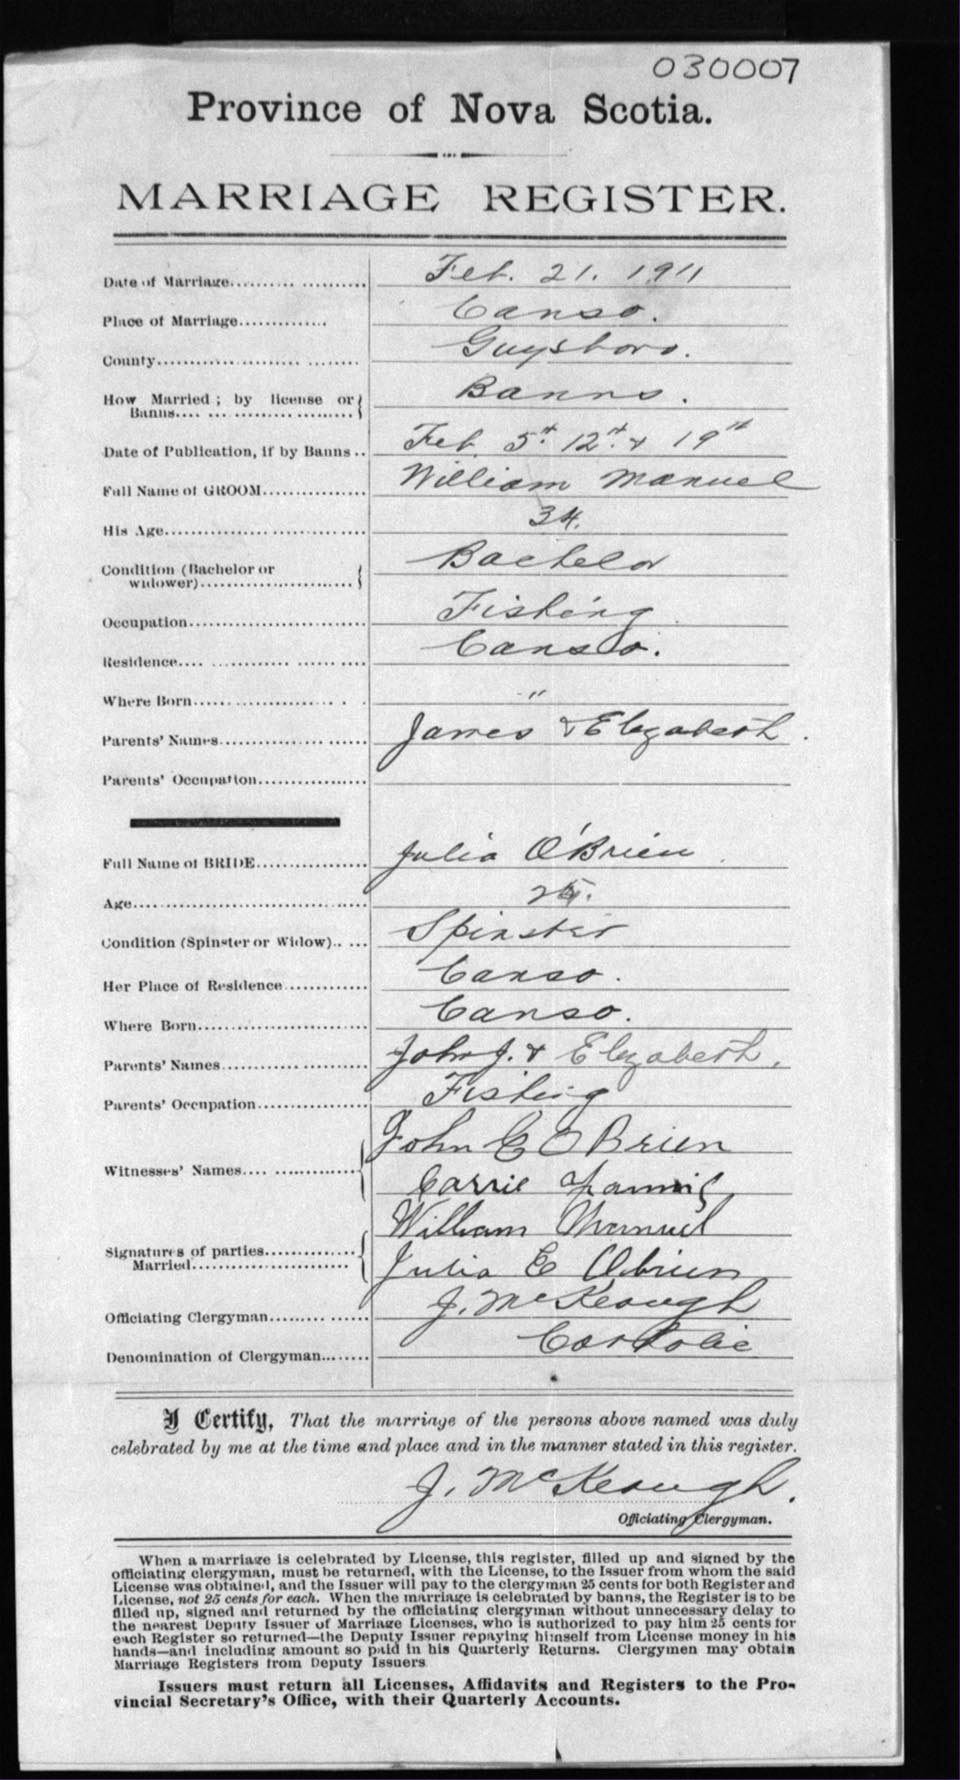 030007
Province of Nova Scotia.
MARRIAGE REGISTER.
Date of Marriage.......... .......... Feb. 21. 1911
Place of Marriage............. Canso.
County.................... ........ ........ Guysboro.
How Married ; by license or Banns.... ... ............... ......... Banns.
Date of Publication, if by Banns .. Feb. 5th. 12th. & 19th
Full Name of GROOM............... William Manuel
His Age.................... ................ 34.
Condition (Bachelor or widower)........................... Bachelor
Occupation............................... Fishing
Residence.... ............ ........ ...... Canso.
Where Born......................... . . "
Parents' Names................. ........ James & Elizabeth.
Parents' Occupation................
Full Name of BRIDE................ Julia O'Brien
Age.................................... 25.
Condition (Spinster or Widow).. .... Spinster
Her Place of Residence............ Canso.
Where Born......................... Canso.
Parents' Names...................... John J. & Elizabeth.
Parents' Occupation................. Fishing
Witnesses' Names.... .............. John C O Brien
Carrie
Signatures of parties.............. William Manuel
Married......................... Julia E Obrien
Officiating Clergyman......... ...... J. McKeough
Denomination of Clergyman........ Catholic
I Certify, That the marriage of the persons above named was duly
celebrated by me at the time and place and in the manner stated in this register.
J. McKeough.
Officiating Clergyman.
When a marriage is celebrated by License, this register, filled up and signed by the
officiating clergyman, must be returned, with the License, to the Issuer from whom the said
License was obtained, and the Issuer will pay to the clergyman 25 cents for both Register and
License, not 25 cents for each. When the marriage is celebrated by banns, the Register is to be
filled up, signed and returned by the officiating clergyman without unnecessary delay to
the nearest Deputy Issuer of Marriage Licenses, who is authorized to pay him 25 cents for
each Register so returned—the Deputy Issuer repaying himself from License money in his
hands—and including amount so paid in his Quarterly Returns. Clergymen may obtain
Marriage Registers from Deputy Issuers
Issuers must return all Licenses, Affidavits and Registers to the Pro-
vincial Secretary's Office, with their Quarterly Accounts.